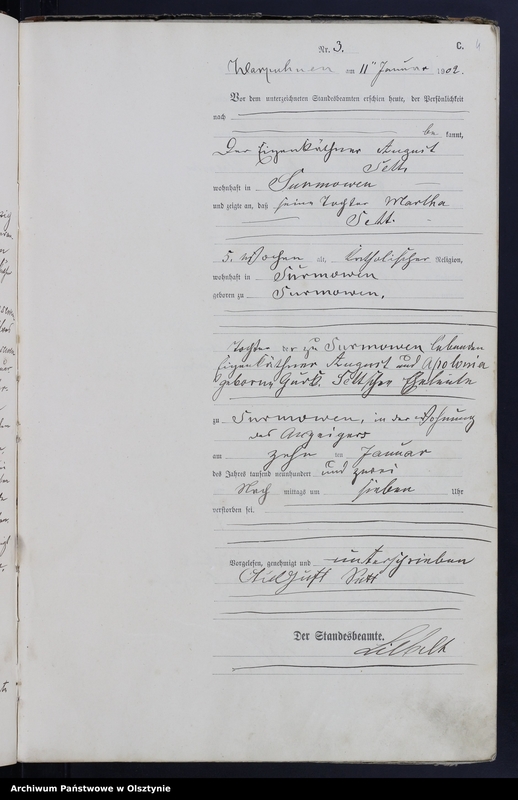 Nr. 3.
C.
Warpuhnen am 11ten Januar 1902.
Vor dem unterzeichneten Standesbeamten erschien heute, der Persönlichkeit
nach
be kannt,
Der Eigenkäthner August
wohnhaft in Surmowen
und zeigte an, daß seine Tochter Martha
5 Wochen alt, katholischer Religion,
wohnhaft in Surmowen
geboren zu Surmowen,
Tochter der zu Surmowen lebenden
Eigenkäthner August und Apolonia
geborne Eheleute
zu Surmowen, in der Wohnung
des Anzeigers
am zehn ten Januar
des Jahres tausend neunhundert und zwei
Nach mittags um sieben Uhr
verstorben sei.
Vorgelesen, genehmigt und unterschrieben
August
Der Standesbeamte.
Archiwum Państwowe w Olsztynie